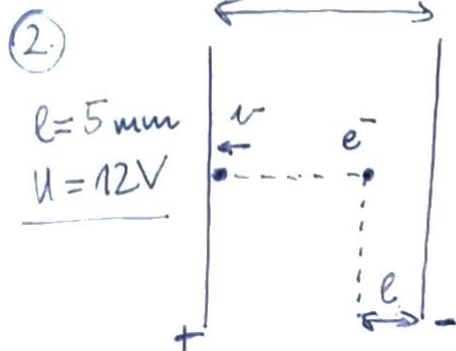 2.
l = 5 mm
U = 12V
v
e⁻
l
+ -